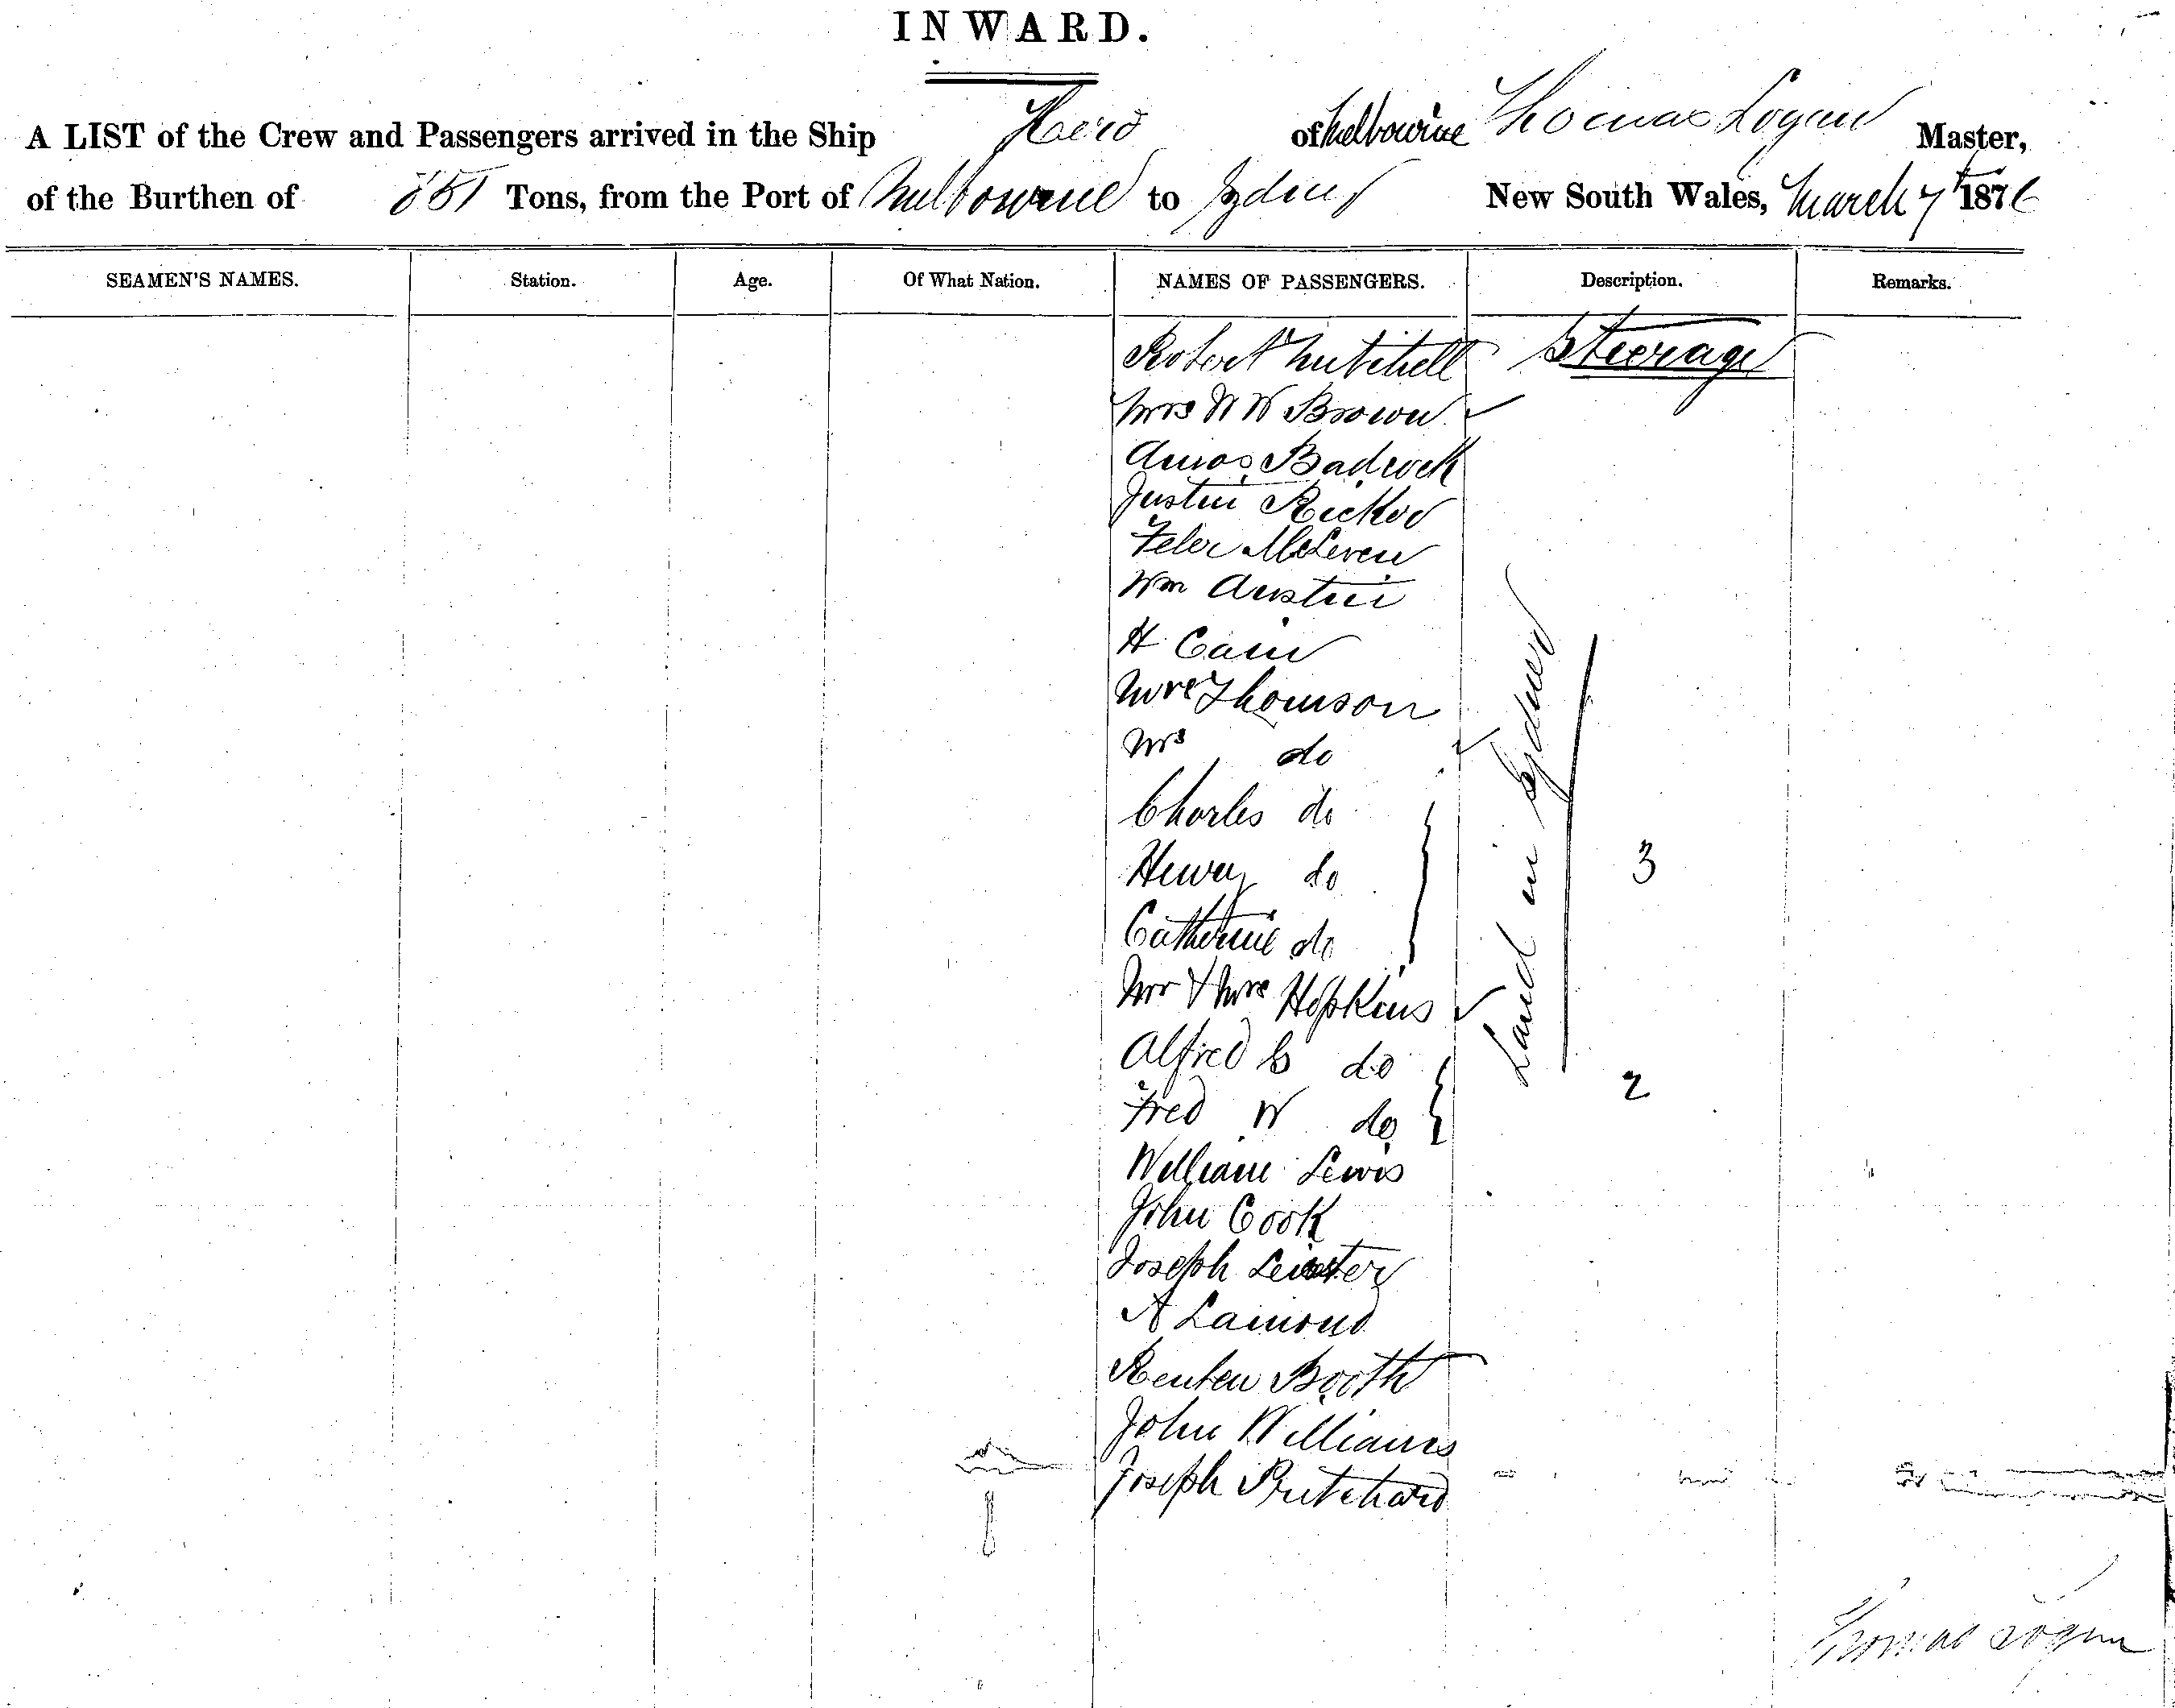 INWARD.
A LIST of the Crew and Passengers arrived in the Ship Hero of Melbourne Thomas Logan Master,
of the Burthen of 851 Tons, from the Port of Melbourne to Sydney New South Wales, March 7th 1876
SEAMEN'S NAMES. Station. Age. Of What Nation. NAMES OF PASSENGERS. Description. Remarks.
Robert Mitchell Steerage
Mrs W W Brown
Amos Badrock
Justin
Peter McLeven
Wm Austin
H Cain
Mrs Thomson
Mrs do
Charles do
Henry do 3
Catherine do
Mr & Mrs Hopkins
Alfred C do
Fred W do 2
Land in Sydney
William Lewis
John Cook
Joseph
A Lamond
Reuben Booth
John Williams
Joseph Pritchard
Thomas Logan